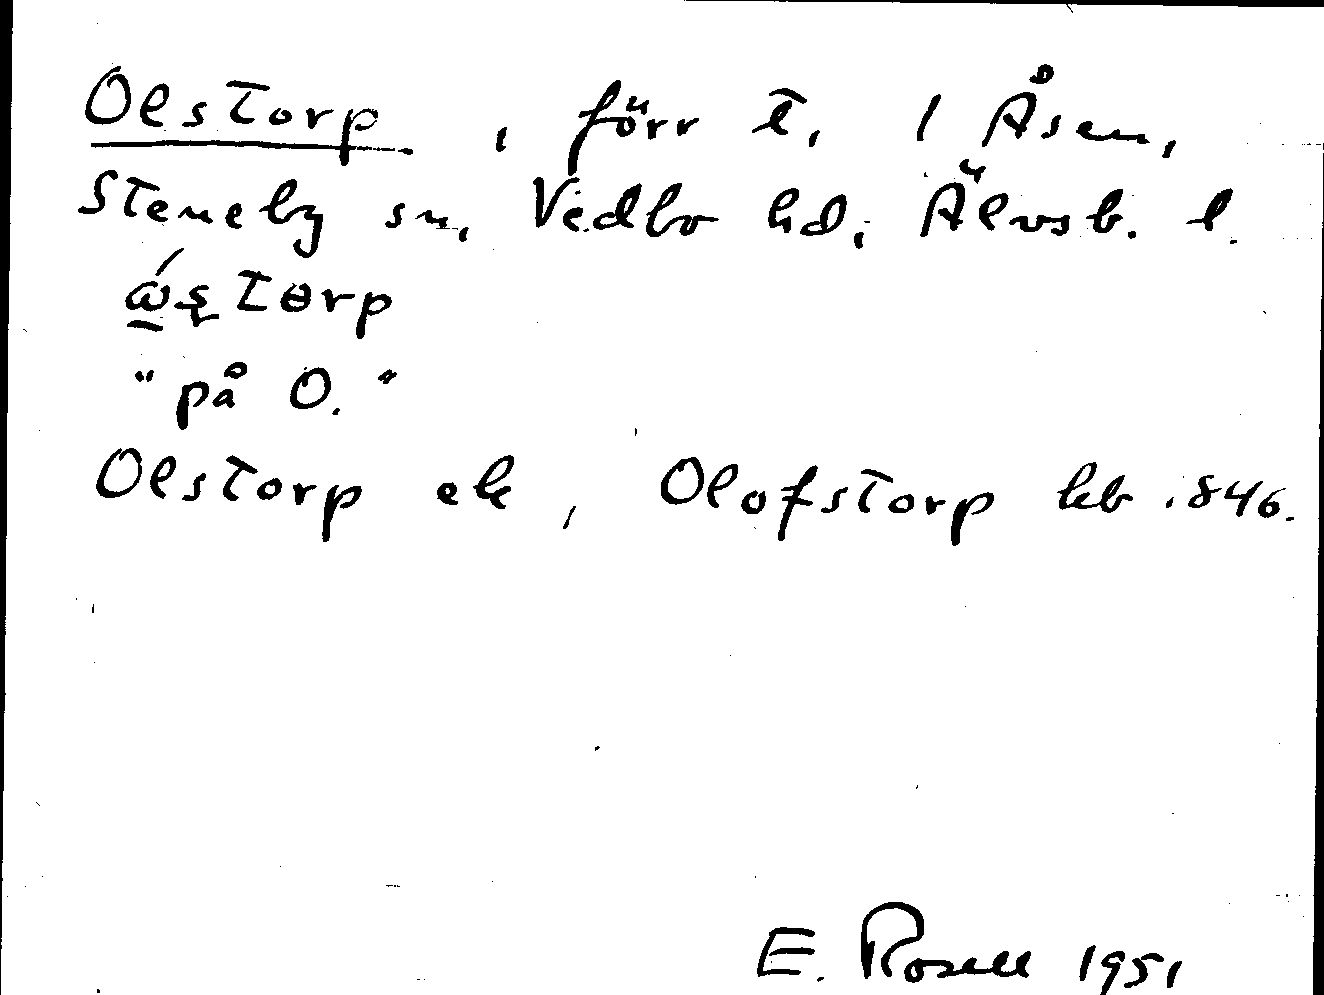 Olstorp, förr t. 1 Åsen,
Steneby sn, Vedbo hd, Älvsb. l.
"på O."
Olstorp ek, Olofstorp kb 1846.
E. Rosell 1951